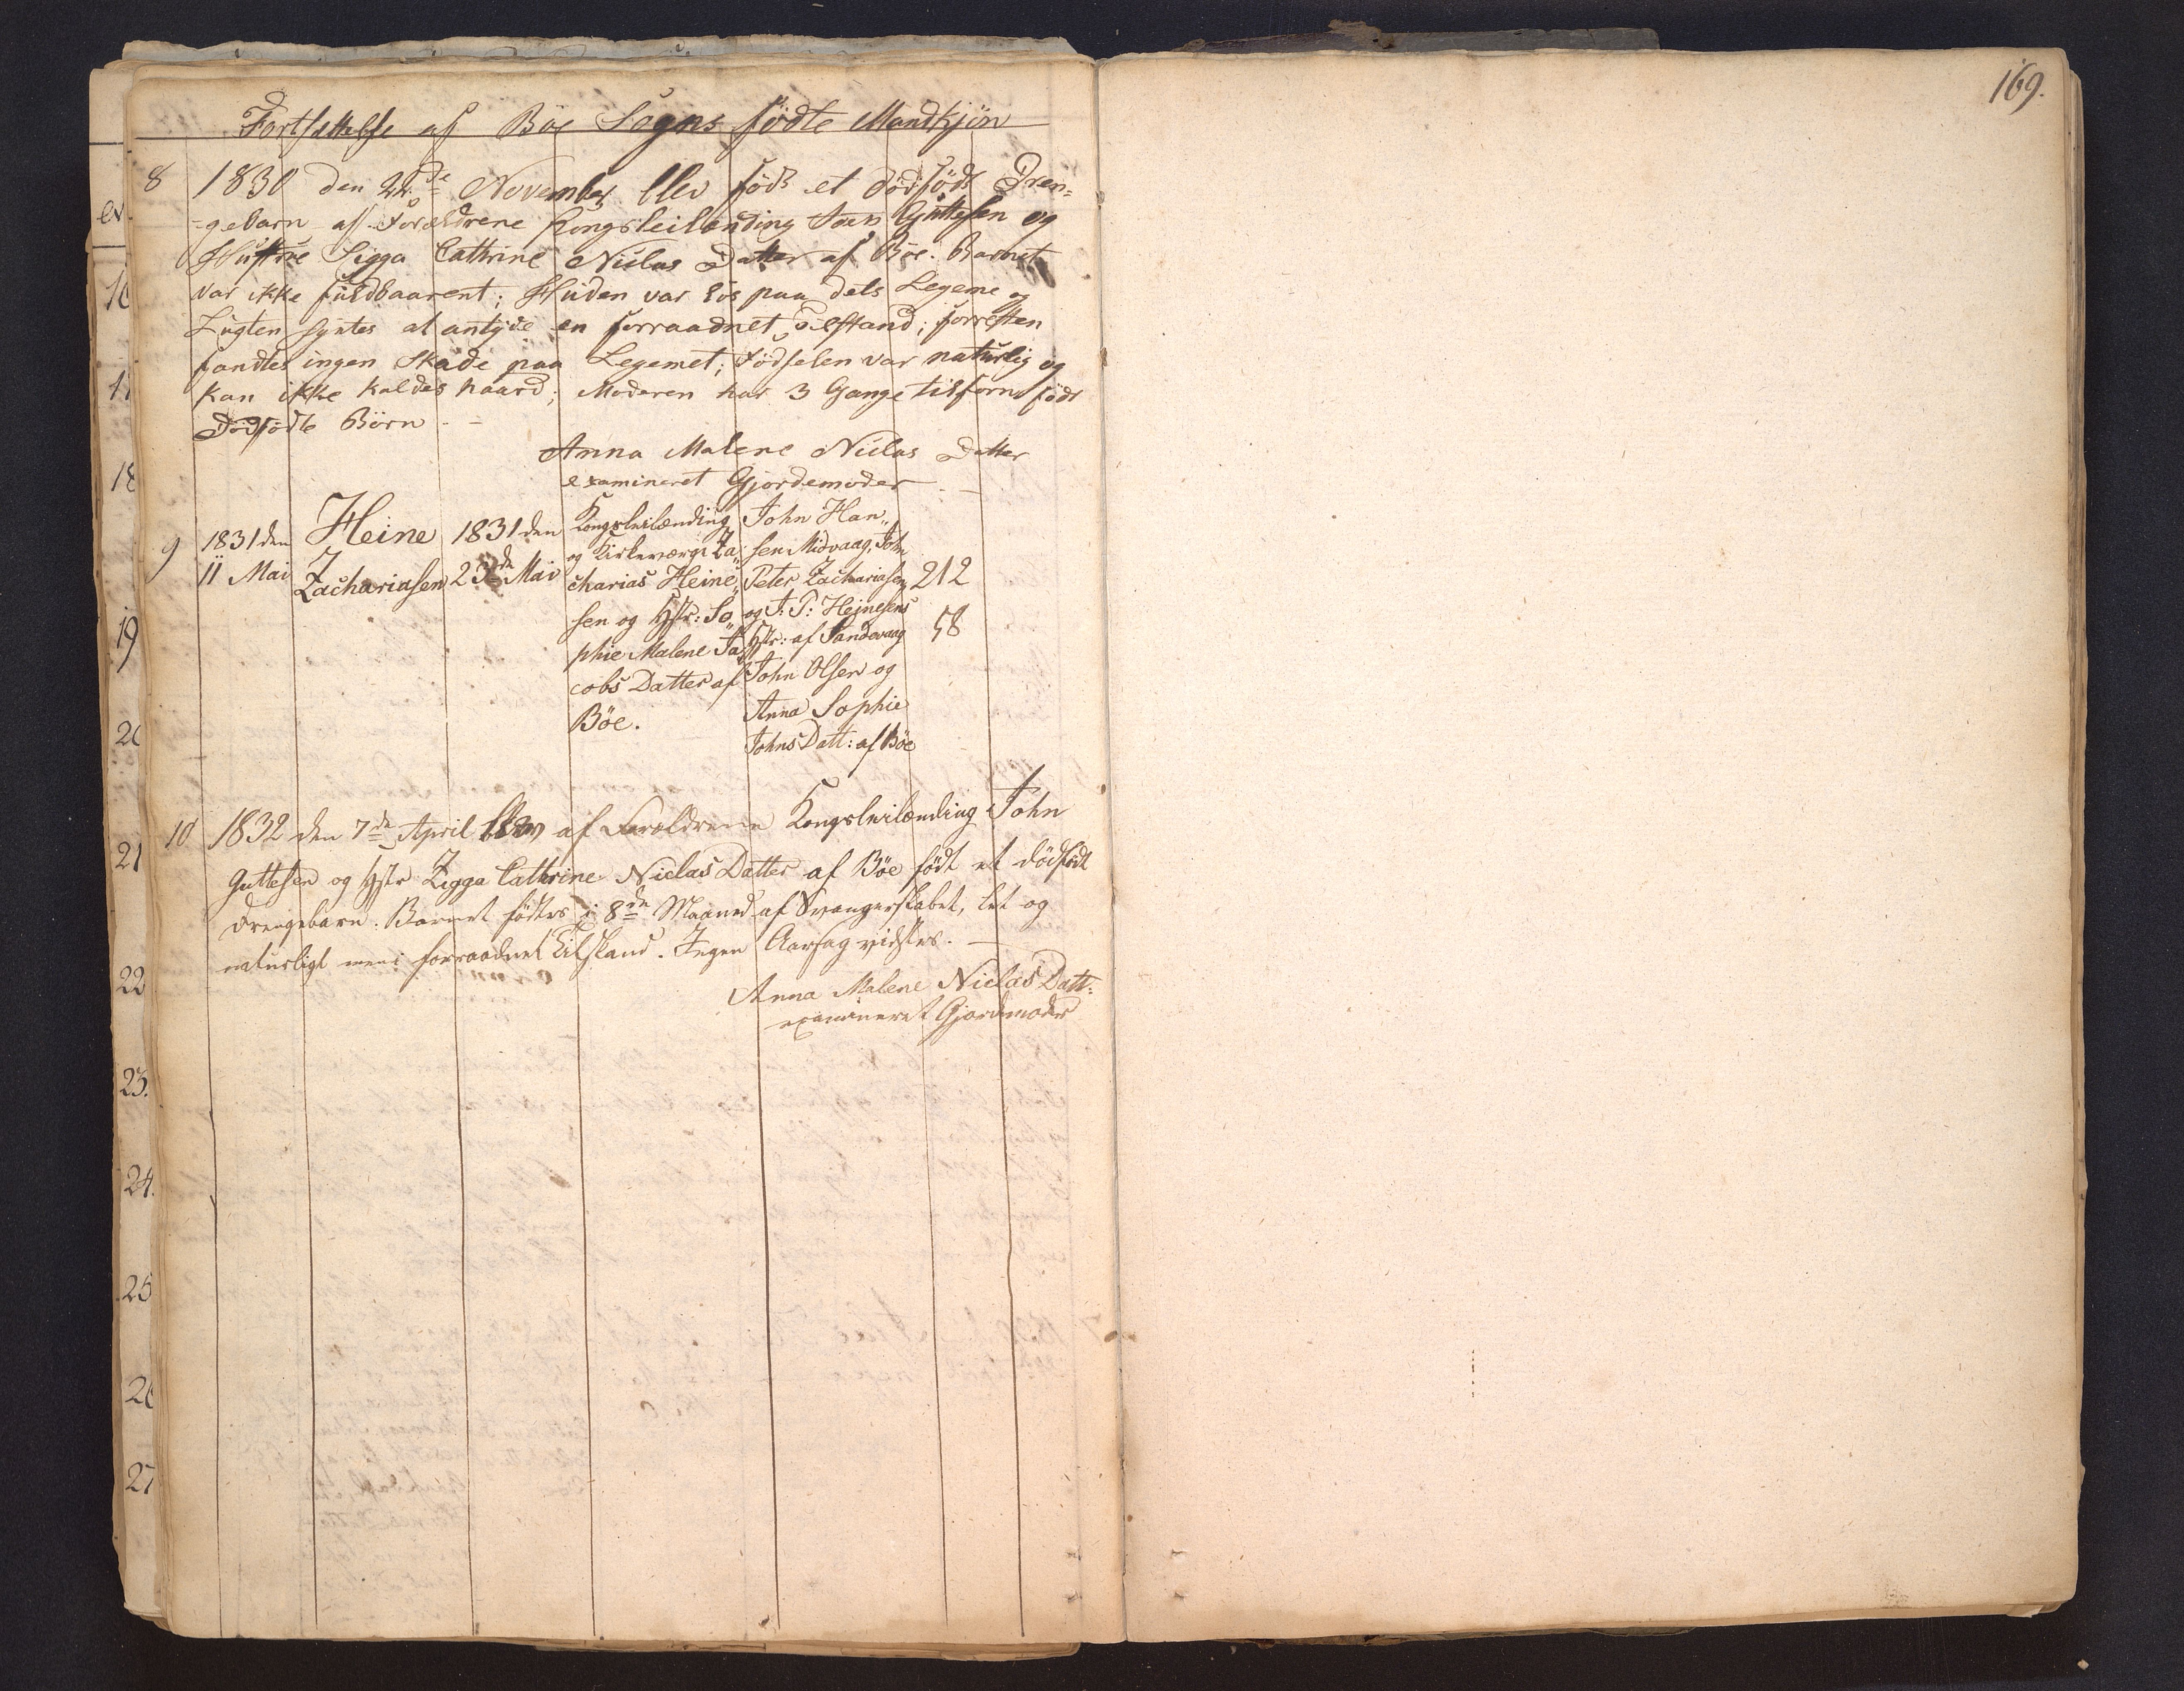 169.
Fortsættelse af Böe Sogns födte Mandkjön
8 1830 den 22de November blev födt et dödfödt Dren=
-gebarn af Forældrene Kongsleilænding Joen Guttesen og
Hustrue Sigga Cathrine Niclas Datter af Böe. Barnet
var ikke fuldbaarent; Huden var lös paa dets Legeme og
Lugten syntes at antyde en forraadnet Tilstand; forresten
fandtes ingen Skade paa Legemet; Födselen var naturlig og
kan ikke kaldes haard; Moderen har 3 Gange tilforn födt
Dödfödte Börn - -
Anna Malene Niclas Datter
examineret Gjordemoder - -
9 1831 den
11 Mai
Heine
Zachariasen
1831 den
23de Mai
Kongsleilænding
og Kirkeværge Za„
charias Heine„
sen og Hstr: So„
phie Malene Ja„
cobs Datter af
Böe.
John Han„
sen Midvaag, John
Peter Zachariasen
og J: P: Hejnesens
Hstr: af Sandevaag
John Olsen og
Anna Sophie
Johns Datt: af Böe
212
58
10 1832 den 7de April blev af Forældrene Kongsleilænding John
Guttesen og Hstr Zigga Cathrine Niclas Datter af Böe födt et dödfödt
Drengebarn. Barnet födtes i 8de Maaned af Svangerskabet, let og
naturligt men i forraadnet Tilstand. Ingen Aarsag vidstes. —
Anna Malene Niclas Datt:
examineret Gjordemoder
ev
16
17
18
19
20
21
22
23.
24.
25
26
27